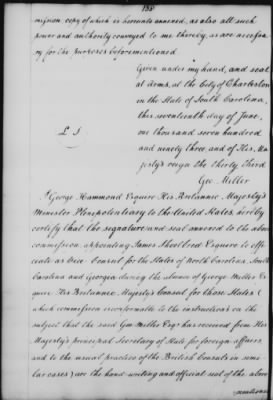 138
mission copy of which is hereunto annexed, as also all such
power and authority conveyed to me thereby, as are necessa
ry for the purposes beforementioned
Given under my hand, and seal
at arms, at the City of Charleston
in the State of South Carolina,
this seventeenth day of June,
one thousand seven hundred
L S
and ninety three and of His, Ma
jesty's reign the thirty third
Geo: Miller
George Hammond Esquire His Britannic Majesty's
Minister Plenipotentiary to the United States, hereby
certify that the signature and seal annexed to the above
commission appointing James Shoolbred Esquire to offici
ate as Vice Consul for the States of North Carolina, South
Carolina and Georgia during the absence of George Miller Es
quire His Britannic Majesty's Consul for those States (
which commission is conformable to the instructions on the
subject that the said Geo Miller Esqr has received from His
Majesty's principal Secretary of State for foreign affairs
and to the usual practice of the British Consuls in simi
lar cases) are the hand writing and official seal of the above
mentioned